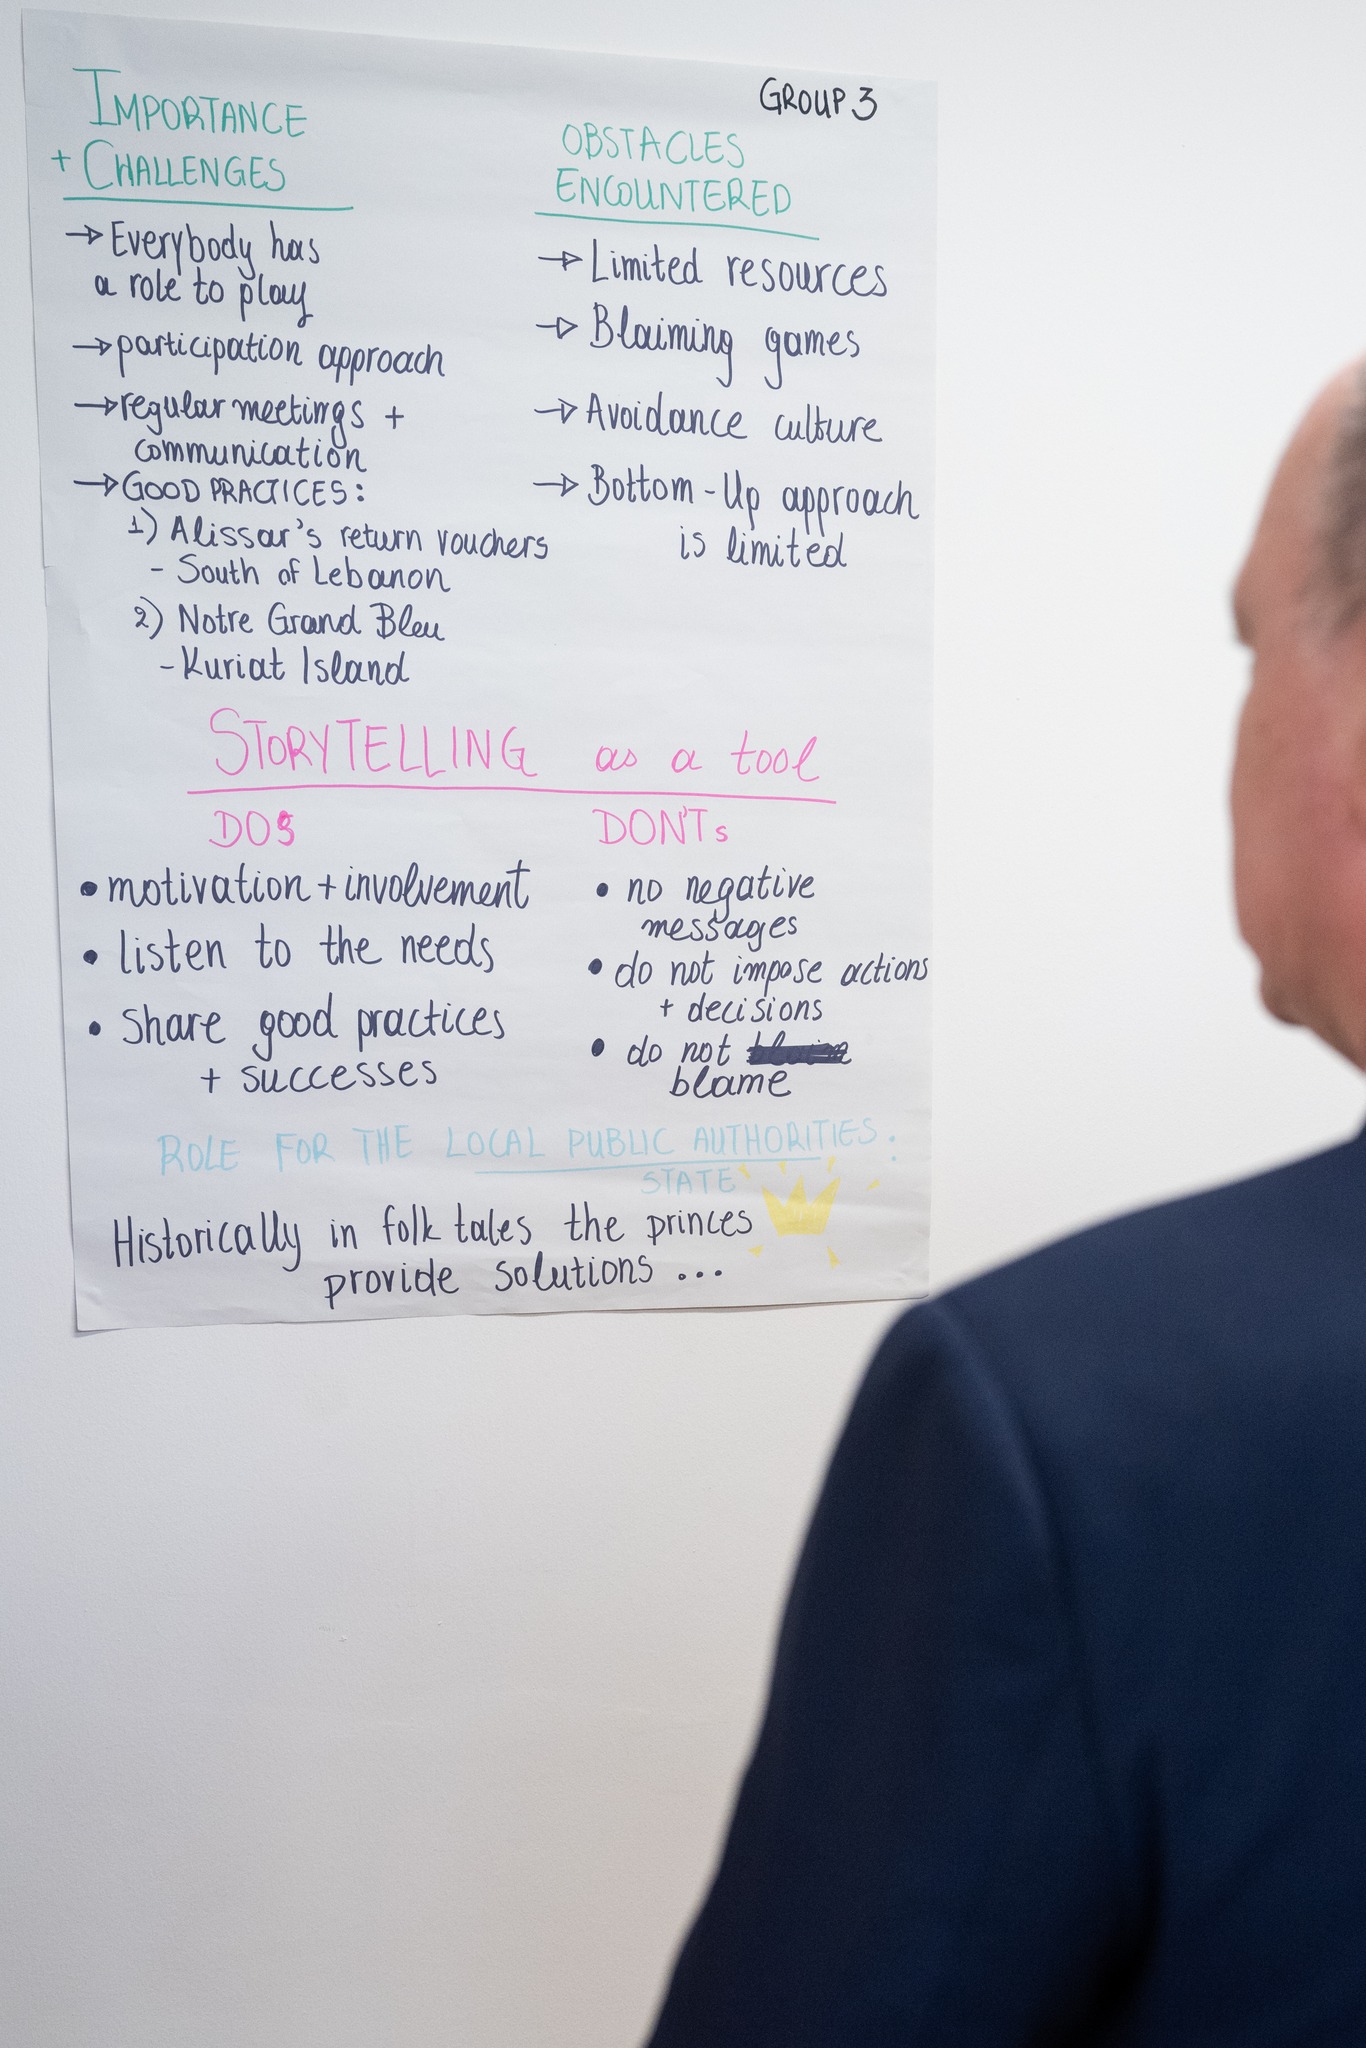 GROUP 3
IMPORTANCE
+ CHALLENGES
→ Everybody has
a role to play
→ participation approach
→ regular meetings +
communication
→ GOOD PRACTICES:
1) Alissar's return vouchers
- South of Lebanon
2) Notre Grand Bleu
- Kuriat Island
OBSTACLES
ENCOUNTERED
→ Limited resources
→ Blaiming games
→ Avoidance culture
→ Bottom-Up approach
is limited
STORYTELLING as a tool
DOS
• motivation + involvement
• listen to the needs
• Share good practices
+ successes
DON'Ts
• no negative
messages
• do not impose actions
+ decisions
• do not
blame
ROLE FOR THE LOCAL PUBLIC AUTHORITIES:
STATE
Historically in folk tales the princes
provide solutions ...